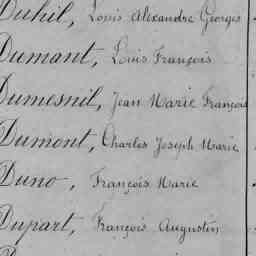 Duhil, Louis Alexandre Georges
Dumant, Louis François
Dumesnil, Jean Marie François
Dumont, Charles Joseph Marie
Duno, François Marie
Dupart, François Augustin